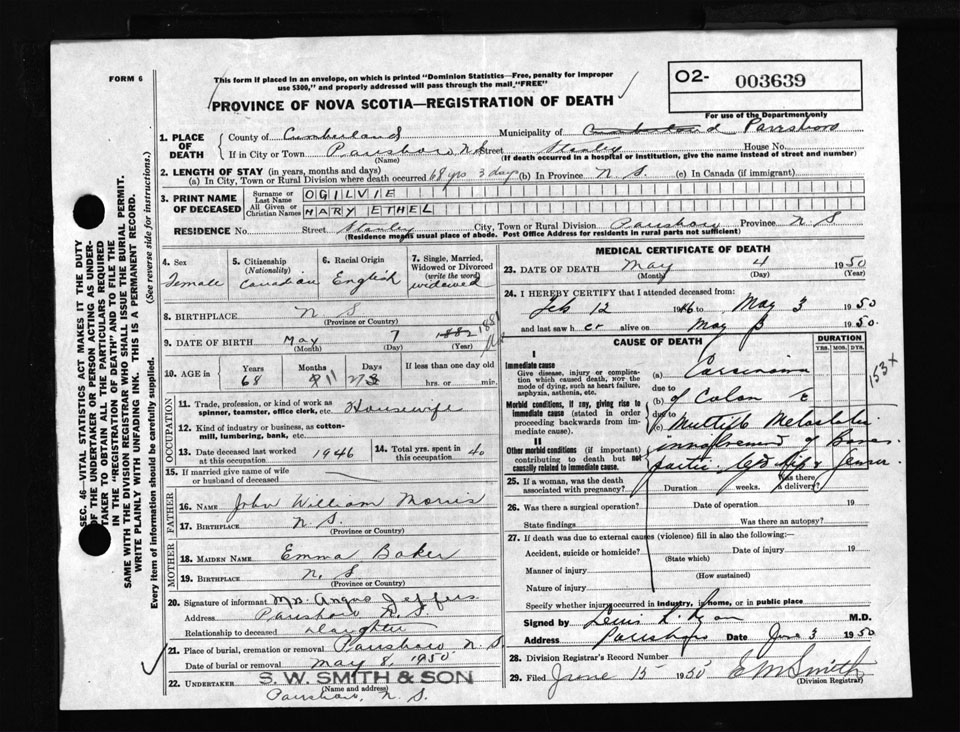 FORM 6
This form if placed in an envelope, on which is printed "Dominion Statistics—Free, penalty for improper
use $300," and properly addressed will pass through the mail "FREE"
O2- 003639
For use of the Department only
PROVINCE OF NOVA SCOTIA—REGISTRATION OF DEATH
1. PLACE OF DEATH
County of Cumberland Municipality of Cumberland Parrsboro
If in City or Town Parrsboro N.S. Street Stanley House No.
(Name) (If death occurred in a hospital or institution, give the name instead of street and number)
2. LENGTH OF STAY (in years, months and days)
(a) In City, Town or Rural Division where death occurred 68 yrs 3 days (b) In Province N. S. (c) In Canada (if immigrant)
3. PRINT NAME OF DECEASED
Surname or Last Name OGILVIE
All Given or Christian Names MARY ETHEL
RESIDENCE No. Street Stanley City, Town or Rural Division Parrsboro Province N. S
(Residence means usual place of abode. Post Office Address for residents in rural parts not sufficient)
4. Sex
Female
5. Citizenship
(Nationality)
Canadian
6. Racial Origin
English
7. Single, Married,
Widowed or Divorced
(write the word)
widowed
8. BIRTHPLACE N S
(Province or Country)
9. DATE OF BIRTH May 7 1882 1881
(Month) (Day) (Year)
10. AGE in
Years Months Days If less than one day old
68 11 hrs. or min.
OCCUPATION
11. Trade, profession, or kind of work as
spinner, teamster, office clerk, etc. Housewife
12. Kind of industry or business, as cotton-
mill, lumbering, bank, etc.
13. Date deceased last worked
at this occupation 1946
14. Total yrs. spent in
this occupation 40
15. If married give name of wife
or husband of deceased
FATHER
16. NAME John William Morris
17. BIRTHPLACE N. S.
(Province or Country)
MOTHER
18. MAIDEN NAME Emma Baker
19. BIRTHPLACE N. S
(Province or Country)
20. Signature of informant Mrs. Angus Jeffers
Address Parrsboro N. S
Relationship to deceased Daughter
21. Place of burial, cremation or removal Parrsboro N. S
Date of burial or removal May 8, 1950
22. UNDERTAKER S. W. SMITH & SON
(Name and address)
Parrsboro, N. S.
MEDICAL CERTIFICATE OF DEATH
23. DATE OF DEATH May 4 1950
(Month) (Day) (Year)
24. I HEREBY CERTIFY that I attended deceased from:
Feb 12 1946 to May 3 1950
and last saw her alive on May 3 1950.
CAUSE OF DEATH
DURATION
YRS. MOS. DYS.
I
Immediate cause
Give disease, injury or compli-
cation which caused death, NOT the
mode of dying, such as heart failure,
asphyxia, asthenia, etc.
(a) Carcinoma
due to
153 x
Morbid conditions, if any, giving rise to
immediate cause (stated in order
proceeding backwards from im-
mediate cause).
(b) of Colon
due to
(c) Multiple Metastatic
II
Other morbid conditions (if important)
contributing to death but not
causally related to immediate cause.
involvement of bones
partic. left hip & femur.
25. If a woman, was the death
associated with pregnancy? Duration weeks. Was there
a delivery?
26. Was there a surgical operation? Date of operation 19
State findings Was there an autopsy?
27. If death was due to external causes (violence) fill in also the following:—
Accident, suicide or homicide? Date of injury 19
(State which)
Manner of injury
(How sustained)
Nature of injury
Specify whether injury occurred in industry, in home, or in public place
Signed by Lewis Ryan M.D.
Address Parrsboro Date June 3 1950
28. Division Registrar's Record Number
29. Filed June 15 1950 E M Smith
(Division Registrar)
SEC. 46—VITAL STATISTICS ACT MAKES IT THE DUTY
OF THE UNDERTAKER OR PERSON ACTING AS UNDER-
TAKER TO OBTAIN ALL THE PARTICULARS REQUIRED
IN THE "REGISTRATION OF DEATH" AND TO FILE THE
SAME WITH THE DIVISION REGISTRAR WHO SHALL ISSUE THE BURIAL PERMIT.
WRITE PLAINLY WITH UNFADING INK. THIS IS A PERMANENT RECORD.
Every item of information should be carefully supplied. (See reverse side for instructions.)